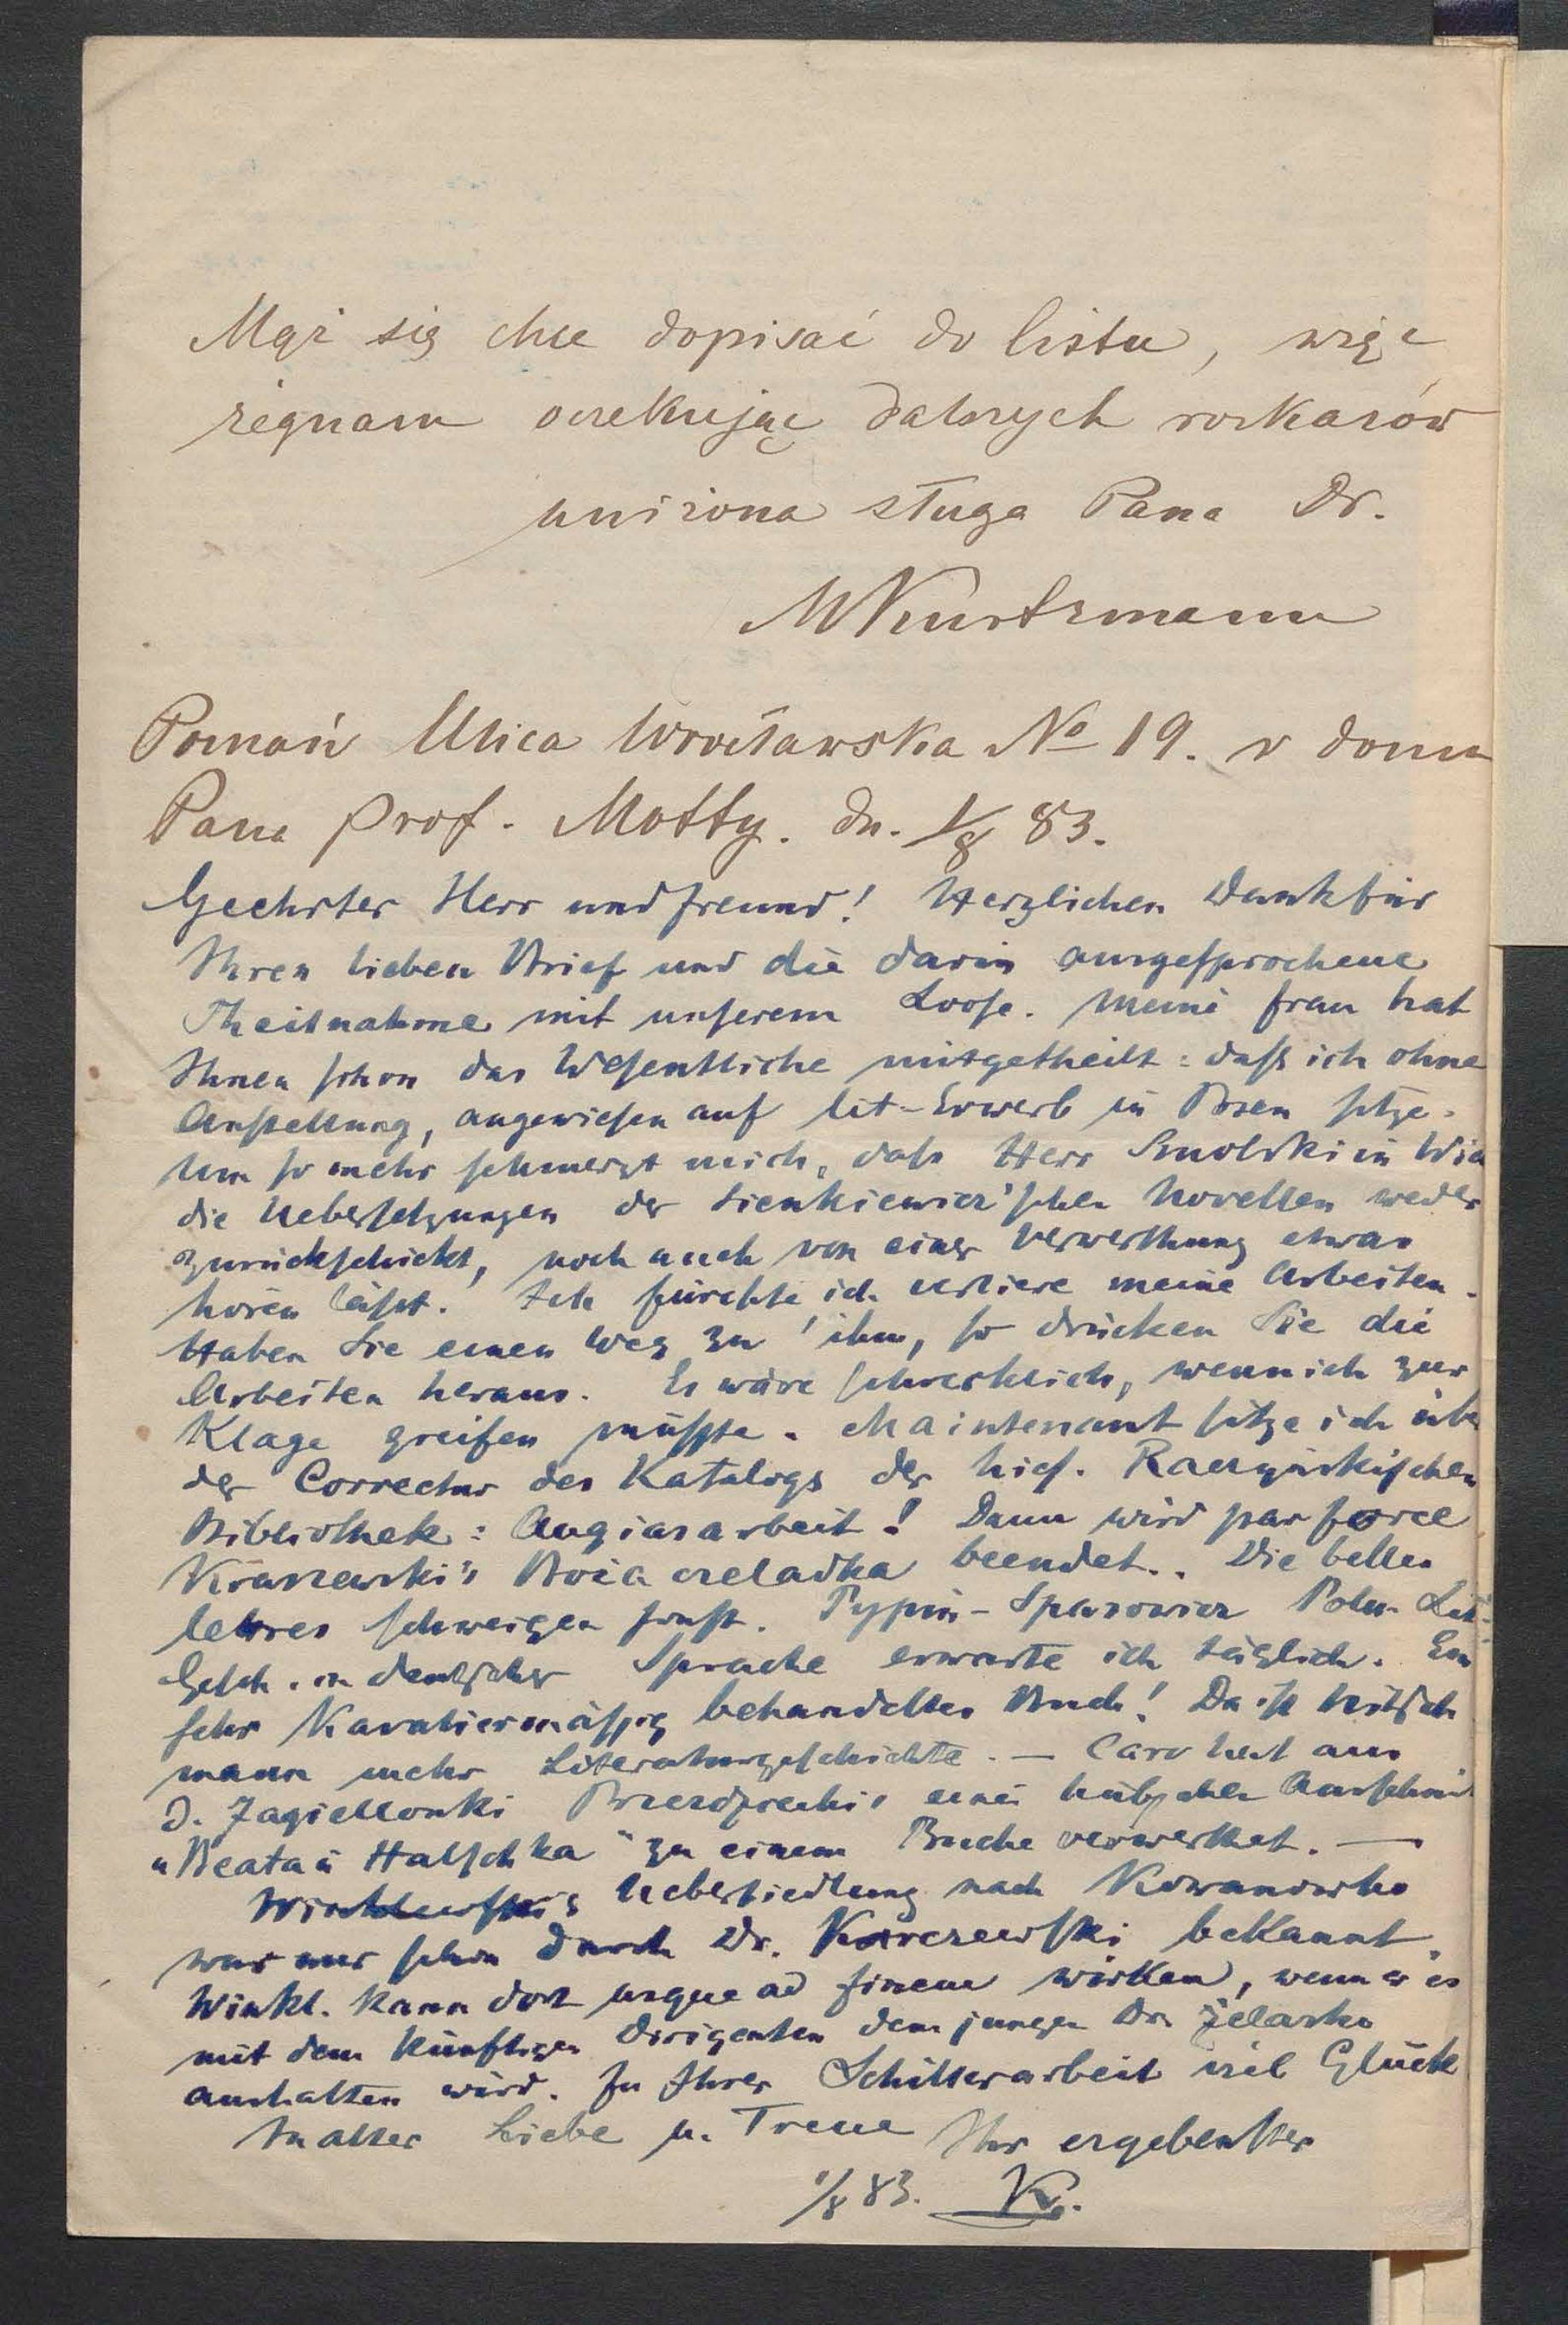 Mąż się chce dopisać do listu, więc
żegnam oczekując dalszych rozkazów
uniżona sługa Pana Dr.
MKurtzmann
Poznań Ulica Wrocławska No 19. w domu
Pana prof. Motty. dn. 1/8 83.
Geehrter Herr und Freund! Herzlichen Dank für
Ihren lieben Brief und die darin ausgesprochene
Theilnahme mit unserem Loose. Meine Frau hat
Ihnen schon das Wesentliche mitgetheilt: daß ich ohne
Anstellung, angewiesen auf lit-Erwerb in Posen sitze.
Um so mehr schmerzt mich, daß Herr Smolski in
die Uebersetzungen der Sienkiewicz'schen Novellen weder
zurückschickt, noch auch von einer Verwerthung etwas
hören läßt. Ich fürchte ich verliere meine Arbeiten.
Haben Sie einen Weg zu ihm, so drücken Sie die
Arbeiten heraus. Es wäre schrecklich, wenn ich zur
Klage greifen müßte. Maintenant sitze ich üb
der Correctur des Katalogs der hies. Raczyńskischen
Bibliothek: Augiasarbeit! Dann wird par force
Kraszewski's Boża czeladka beendet.. Die belles
lettres schweigen sonst. Pypin-Spasowicz Poln. Lit-
Gesch. in deutscher Sprache erwarte ich täglich. Ein
sehr Kavaliermäßig behandeltes Buch! Da ist Nitsch
mann mehr Literaturgeschichte. — Caro hat aus
d. Jagiellonki Przezdziecki's einen hübschen Ausschnitt
"Beata u Halschka" zu einem Buche verwerthet. —
Uebersiedlung nach Kowanowko
war mir schon durch Dr. Karczewski bekannt.
Winkl. kann dort usque ad finem wirken, wenn er es
mit dem künftigen Dirigenten dem jungen Dr Żelasko
aushalten wird. Zu Ihrer Schillerarbeit viel Glück
In alter Liebe u. Treue Ihr ergebenster
1/8 83. K.